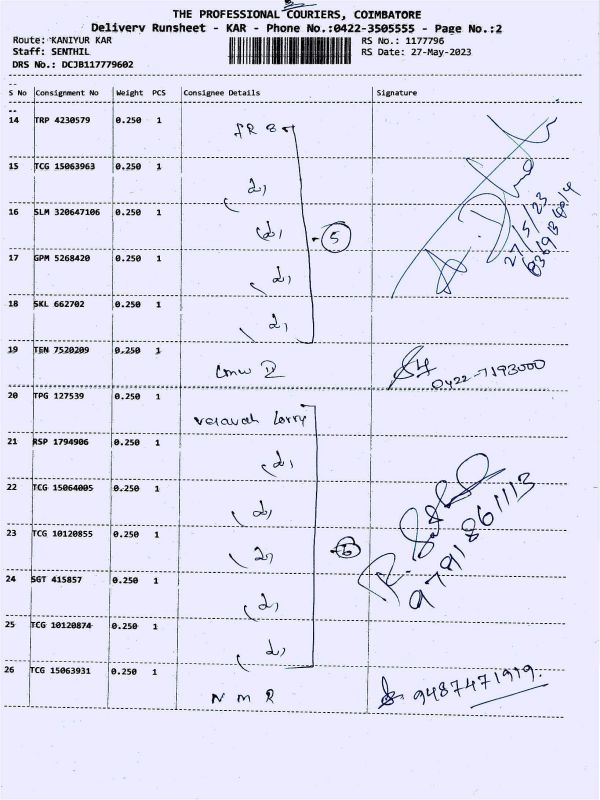 THE PROFESSIONAL COURIERS, COIMBATORE
Delivery Runsheet - KAR - Phone No.:0422-3505555 - Page No.:2
Route: KANIYUR KAR RS No.: 1177796
Staff: SENTHIL RS Date: 27-May-2023
DRS No.: DCJB117779602
S No Consignment No Weight PCS Consignee Details Signature
14 TRP 4230579 0.250 1
15 TCG 15063963 0.250 1
16 SLM 320647106 0.250 1
5
17 GPM 5268420 0.250 1
27/5/23
18 SKL 662702 0.250 1
19 TEN 7520209 0.250 1
0422-7193000
20 TPG 127539 0.250 1
lorry
21 RSP 1794906 0.250 1
22 TCG 15064005 0.250 1
23 TCG 10120855 0.250 1
6
9791861113
24 SGT 415857 0.250 1
25 TCG 10120874 0.250 1
26 TCG 15063931 0.250 1
N M R 9487471919.